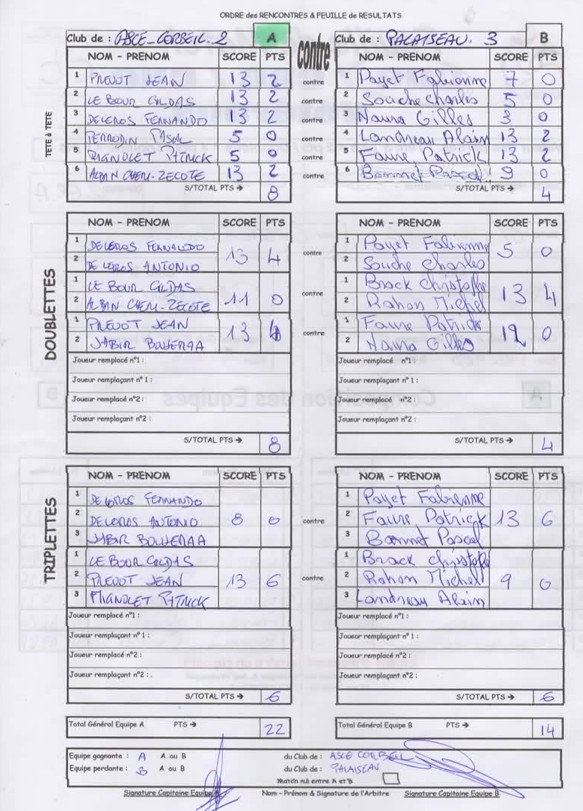 ORDRE des RENCONTRES & FEUILLE de RESULTATS
Club de : ASCE-CORBEIL. 2 A contre Club de : PALAISEAU. 3 B
NOM - PRENOM SCORE PTS NOM - PRENOM SCORE PTS
TETE à TETE
1 PREVOT JEAN 13 2 contre 1 Payet Fabienne 7 0
2 LE BOUR GILDAS 13 2 2 Souche Charles 5 0
3 DELEROS FERNANDO 13 2 contre 3 Nauna Gilles 3 0
4 PERRODIN PASCAL 5 0 contre 4 Landreau Alain 13 2
5 MIGNOLET PATRICK 5 0 contre 5 Faure Patrick 13 2
6 ALBAN CHEM-ZECOTE 13 2 contre 6 Bonnet Pascal 9 0
S/TOTAL PTS → 8 S/TOTAL PTS → 4
DOUBLETTES
NOM - PRENOM SCORE PTS NOM - PRENOM SCORE PTS
1 DELEROS FERNANDO 13 4 contre 1 Payet Fabienne 5 0
2 DELEROS ANTONIO 2 Souche Charles
1 LE BOUR GILDAS 11 0 contre 1 Brack Christophe 13 4
2 ALBAN CHEM-ZECOTE 2 Rohon Michel
1 PREVOT JEAN 13 4 contre 1 Faure Patrick 12 0
2 JABIR BOUHERAA 2 Nauna Gilles
Joueur remplacé n°1 : Joueur remplacé n°1 :
Joueur remplaçant n° 1 : Joueur remplaçant n° 1 :
Joueur remplacé n°2 : Joueur remplacé n°2 :
Joueur remplaçant n°2 : Joueur remplaçant n°2 :
S/TOTAL PTS → 8 S/TOTAL PTS → 4
TRIPLETTES
NOM - PRENOM SCORE PTS NOM - PRENOM SCORE PTS
1 DELEROS FERNANDO 1 Payet Fabienne
2 DELEROS ANTONIO 8 0 contre 2 Faure Patrick 13 6
3 JABIR BOUHERAA 3 Bonnet Pascal
1 LE BOUR GILDAS 1 Brack Christophe
2 PREVOT JEAN 13 6 contre 2 Rohon Michel 9 0
3 MIGNOLET PATRICK 3 Landreau Alain
Joueur remplacé n°1 : Joueur remplacé n°1 :
Joueur remplaçant n° 1 : Joueur remplaçant n° 1 :
Joueur remplacé n°2 : Joueur remplacé n°2 :
Joueur remplaçant n°2 : Joueur remplaçant n°2 :
S/TOTAL PTS → 6 S/TOTAL PTS → 6
Total Général Equipe A PTS → 22 Total Général Equipe B PTS → 14
Equipe gagnante : A A ou B du Club de : ASCE CORBEIL
Equipe perdante : B A ou B du Club de : PALAISEAU
Match nul entre A et B
Signature Capitaine Equipe A Nom - Prénom & Signature de l'Arbitre Signature Capitaine Equipe B